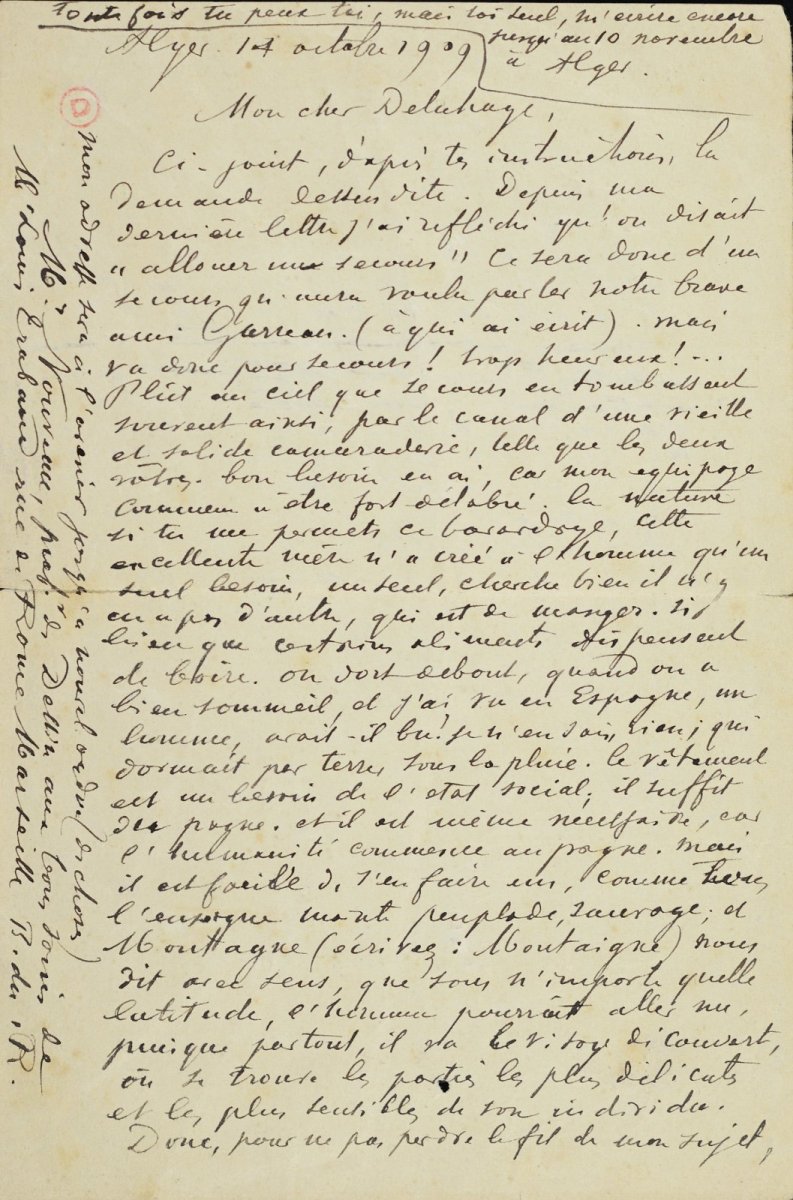 toutefois tu peux toi, mais toi seul, m'écrire encore
jusqu'au 10 novembre
à Alger.
Alger. 14 octobre 1909
Mon cher Delahaye,
Ci-joint, d'après tes instructions, la
demande dessus dite. Depuis ma
dernière lettre j'ai réfléchi qu'on disait
"allouer un secours" Ce sera donc d'un
secours qu'aura voulu parler notre brave
ami (à qui ai écrit). Mais
va donc pour secours! trop heureux!...
Plût au ciel que secours en tombassent
souvent ainsi, par le canal d'une vieille
et solide camaraderie, telle que les deux
vôtres. bon besoin en ai, car mon equipage
commence à être fort délabré. la nature
si tu me permets ce bavardage, cette
excellente mère n'a créé à l'homme qu'un
seul besoin, un seul, cherche bien il n'y
en a pas d'autre, qui est de manger. si
bien que certains aliments dispensent
de boire. on dort debout, quand on a
bien sommeil, et j'ai vu en Espagne, un
homme, avait-il bu? je n'en sais rien; qui
dormait par terre sous la pluie. le vêtement
est un besoin de l'etat social; il suffit
du pagne. et il est même nécessaire, car
l'humanité commence au pagne. mais
il est facile de s'en faire un, comme
l'enseigne mainte peuplade, sauvage; et
Montagne (écrivez: Montaigne) nous
dit avec sens, que sous n'importe quelle
latitude, l'homme pourrait aller nu,
puisque partout, il va le visage découvert,
où se trouve les parties les plus délicates
et les plus sensibles de son individu.
Donc, pour ne pas perdre le fil de mon sujet,
D
mon adresse sera à l'avenir jusqu'à nouvel ordre (de choses)
Mr Nouveau, prof. de Dessin aux bons soins de
Mr Louis rue de Rome Marseille B. du R.